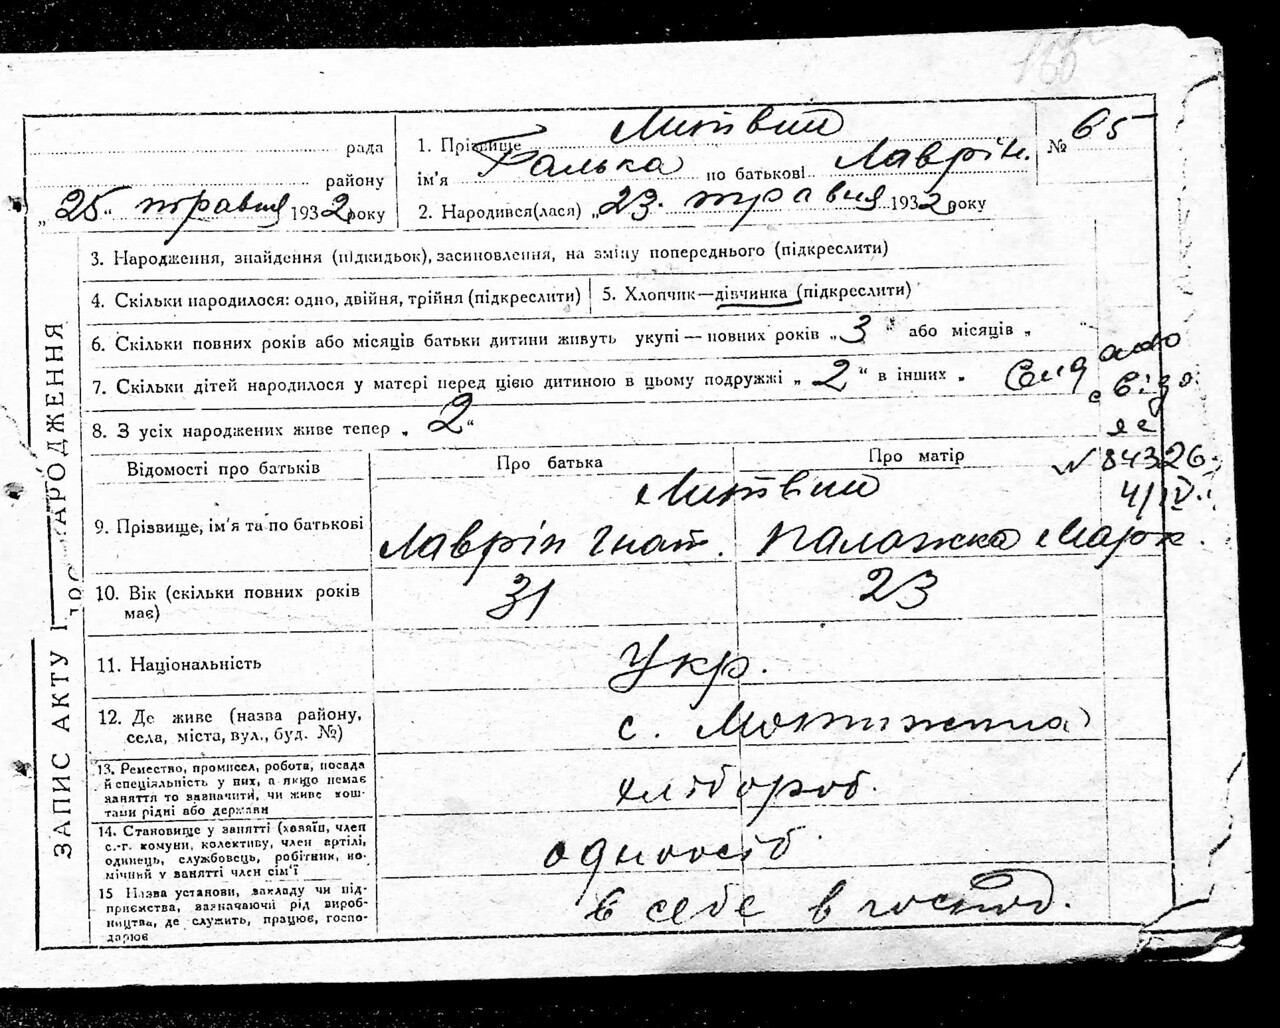 155
рада
району
„ 25 “ травня 1932 року
1. Прізвище Литвин
ім'я Галька по батькові Лаврін.
2. Народився(лася) „ 23. травня 1932 року
№ 65
ЗАПИС АКТУ НАРОДЖЕННЯ
3. Народження, знайдення (підкидьок), засиновлення, на зміну попереднього (підкреслити)
4. Скільки народилося: одно, двійня, трійня (підкреслити)
5. Хлопчик—дівчинка (підкреслити)
6. Скільки повних років або місяців батьки дитини живуть укупі — повних років „ 3 “ або місяців „
7. Скільки дітей народилося у матері перед цією дитиною в цьому подружжі „ 2 “ в інших „
8. З усіх народжених живе тепер „ 2 “
N 84326
4/IV.
Відомості про батьків
Про батька
Про матір
9. Прізвище, ім'я та по батькові
Литвин
Лаврін Гнат. Палажка Марк.
10. Вік (скільки повних років
має)
31
23
11. Національність
Укр.
12. Де живе (назва району,
села, міста, вул., буд. №)
с. Мотижина
13. Ремество, промисел, робота, посада
й спеціяльність у них, а якщо немає
заняття то зазначити, чи живе кош-
тами рідні або держави
хлібороб.
14. Становище у занятті (хазяїн, член
с.-г. комуни, колективу, член артілі,
одинець, службовець, робітник, по-
мічний у занятті член сім'ї
одноосіб
15 Назва установи, закладу чи під-
приємства, зазначаючи рід вироб-
ництва, де служить, працює, госпо-
дарює
в себе в господ.